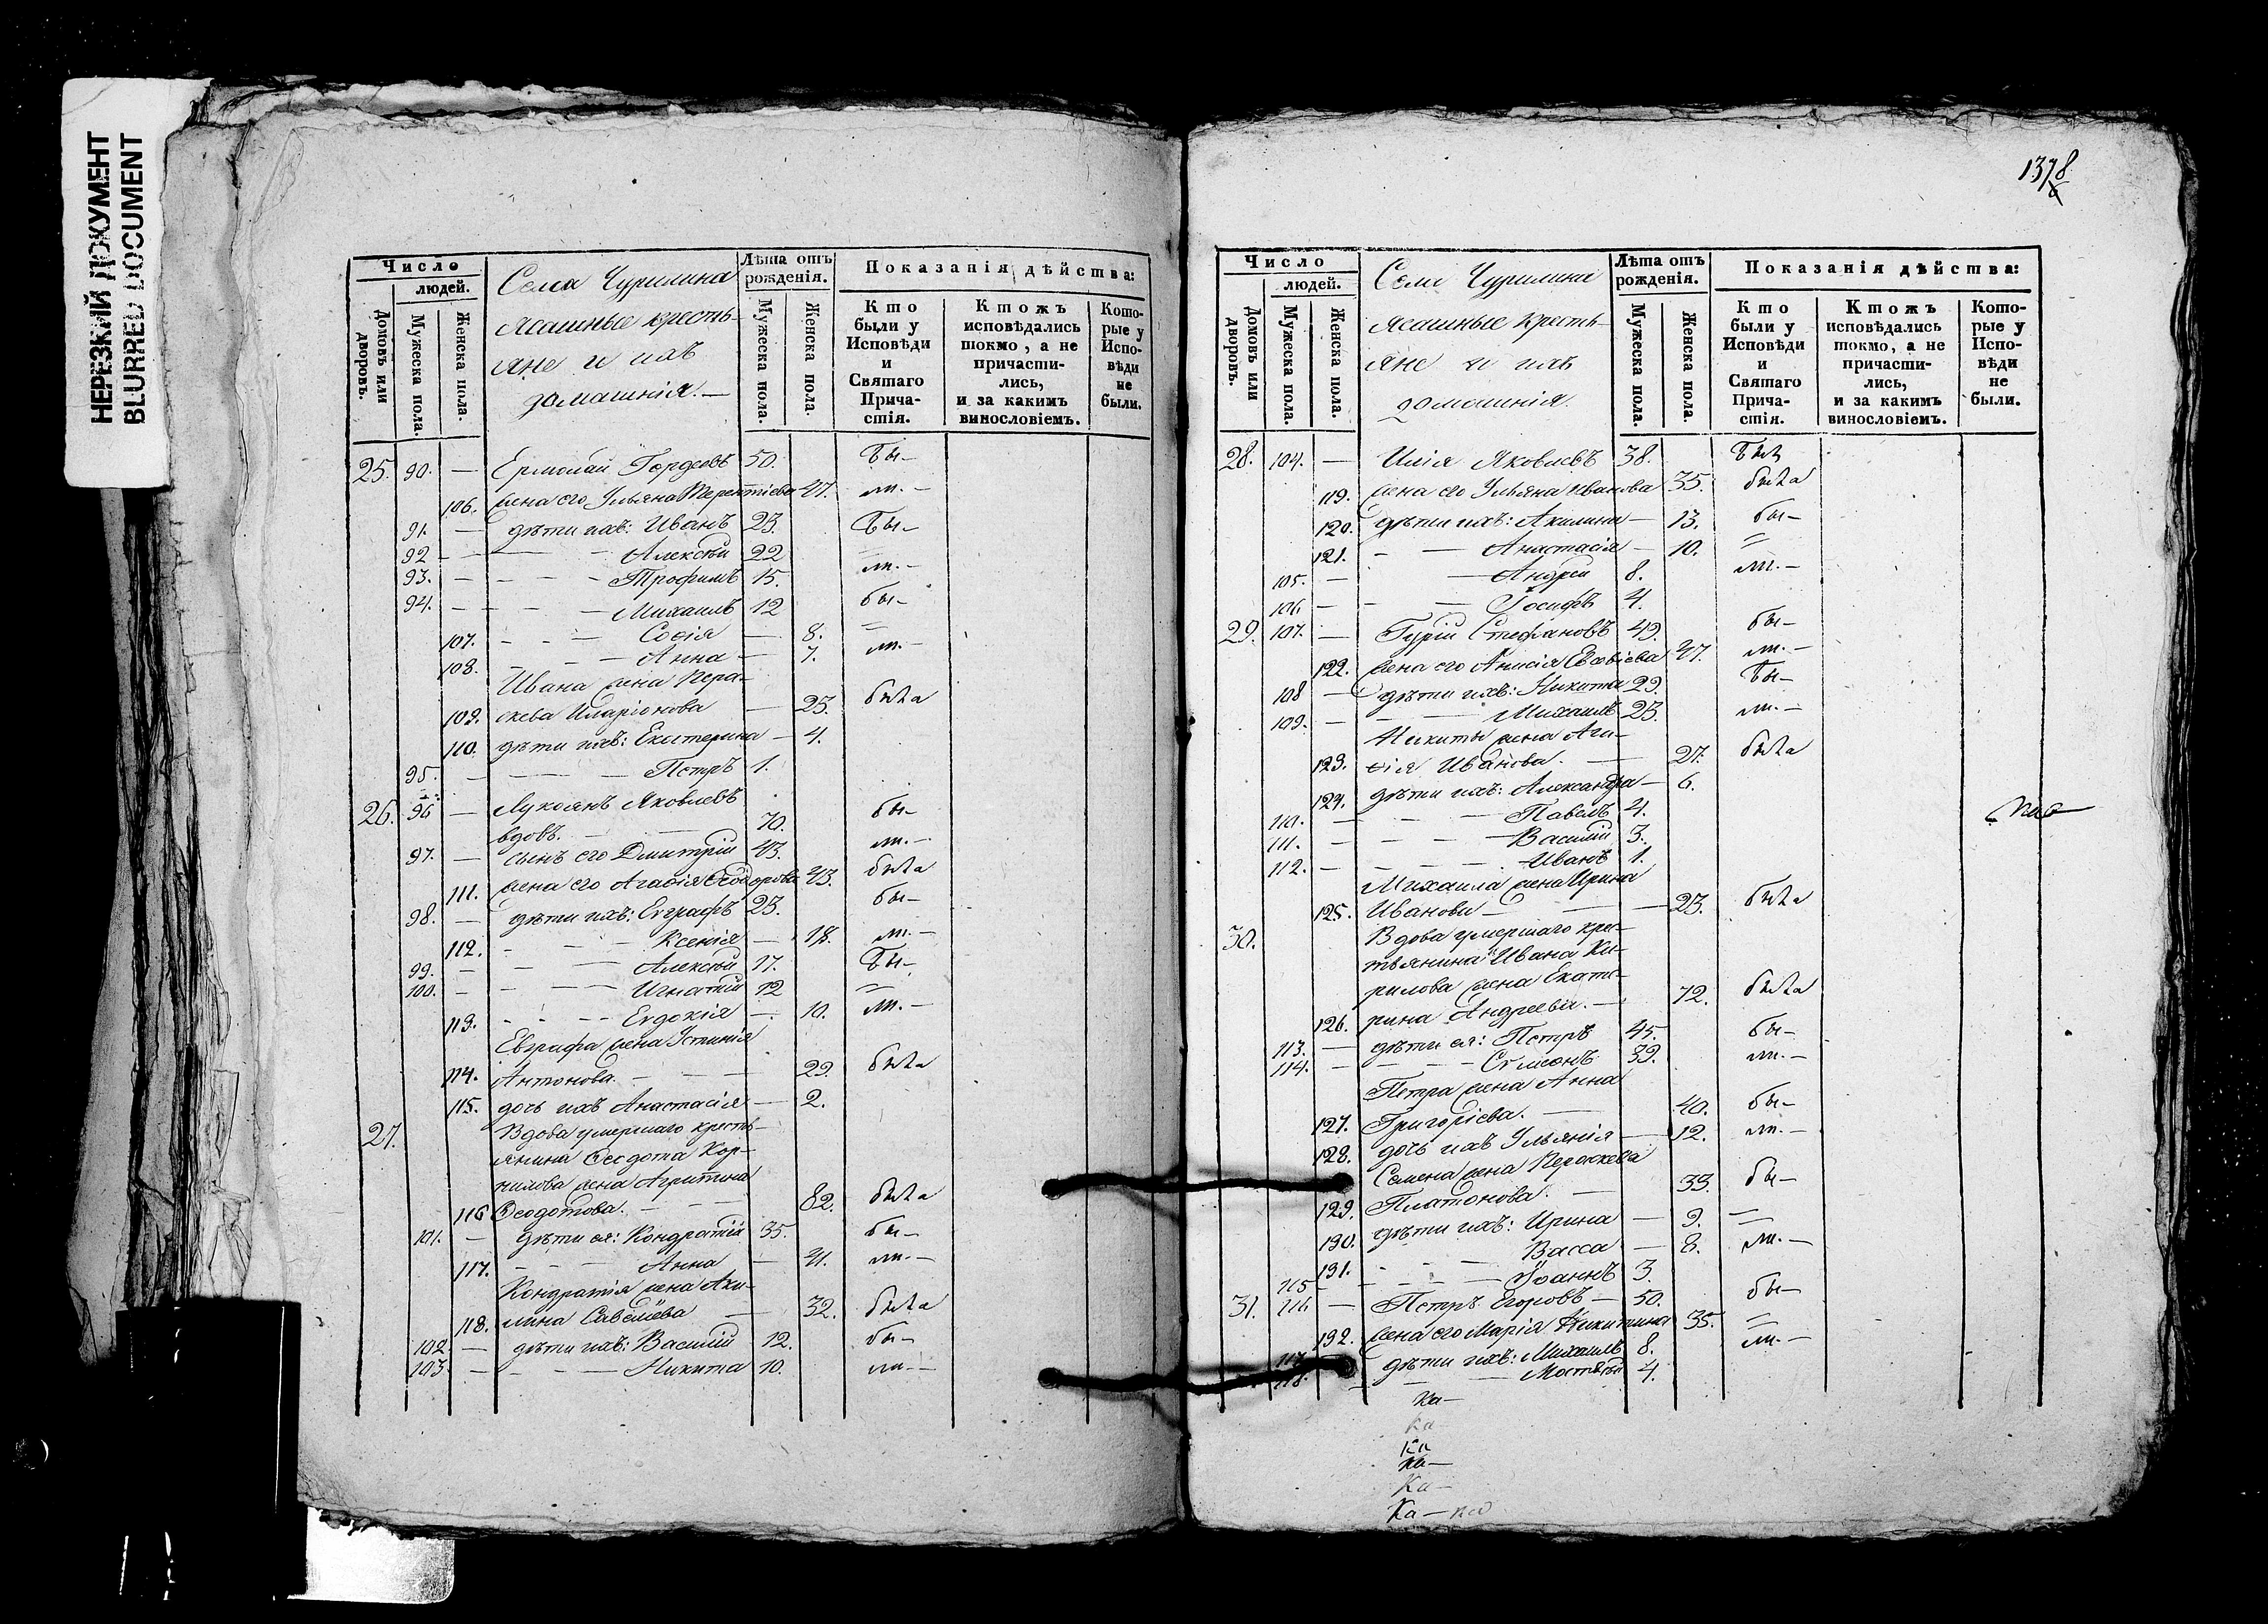 НЕРЕЗКИЙ ДОКУМЕНТ
BLURRED DOCUMENT
Число
людей.
Домовъ или дворовъ.
Мужеска пола.
Женска пола.
Села Чурилина
Ясашные кресть-
яне и ихъ
домашнія. —
Лѣта отъ рожденія.
Мужеска пола.
Женска пола.
Показанія дѣйства:
Кто были у Исповѣди и Святаго Прича-стія.
Ктожъ исповѣдались токмо, а не причасти-лись, и за какимъ винословіемъ.
Кото-рые у Испо-вѣди не были.
25. 90. — Ермолай Гордеевъ 50. бы-
106. жена его Ульяна Терентіева 47. ли. —
91. — дѣти ихъ: Иванъ 23. бы-
92 — — Алексѣй 22 =
93. — — Трофимъ 15. ли. —
94. — — Михаилъ 12 бы-
107. — — Софія — 8. =
108. — — Анна — 7. ли. —
Ивана жена Пера-
109. скева Иларіонова — 23. была
110. дѣти ихъ: Екатерина — 4.
95. — — Петръ 1.
26. 96 — Лукоянъ Яковлевъ
вдовъ. — — 70. бы-
97. — сынъ его Дмитрій 43. ли. —
111. жена его Агафія Ѳеодорова 43. была
98. — дѣти ихъ: Евграфъ 23. бы-
112. — — Ксенія — 18. ли. —
99. — — Алексѣй 17. бы-
100. — — Игнатій 12 =
113. — — Евдокія — 10. ли. —
Евграфа жена Устинія
114. Антонова. — — 29. была
115. дочь ихъ Анастасія — 2.
27. Вдова умершаго кресть-
янина Ѳеодота Кор-
нилова жена Агрипина
116 Ѳеодотова. — — 82. была
101. — дѣти ея: Кондратій 35. бы-
117. — — Анна — 21. ли. —
Кондратія жена Аки-
118. лина Савельева — 32. была
102. — дѣти ихъ: Василій 12. бы-
103. — — Никита 10. ли. —
1378
Число
людей.
Домовъ или дворовъ.
Мужеска пола.
Женска пола.
Села Чурилина
Ясашные кресть-
яне и ихъ
домашнія.
Лѣта отъ рожденія.
Мужеска пола.
Женска пола.
Показанія дѣйства:
Кто были у Исповѣди и Святаго Прича-стія.
Ктожъ исповѣдались токмо, а не причасти-лись, и за какимъ винословіемъ.
Кото-рые у Испо-вѣди не были.
28. 104. — Илія Яковлевъ 38. былъ
119. жена его Ульяна Иванова 35. была
120. дѣти ихъ: Акилина — 13. бы-
121. — — Анастасія — 10. =
105. — — Андрей 8. ли. —
106 — — Іосифъ 4.
29. 107. — Гурій Стефановъ 49. бы-
122. жена его Анисія Евсевіева 47. ли. —
108 — дѣти ихъ: Никита 29. бы-
109. — — Михаилъ 23. ли. —
Никиты жена Ага-
123. фія Иванова. — 27. была
124. дѣти ихъ: Александра — 6.
110. — — Павелъ 4.
111. — — Василій 3.
112. — — Иванъ 1.
Михаила жена Ирина
125. Иванова — — 23. была
30. Вдова умершаго кре-
стьянина Ивана Ки-
рилова жена Екате-
126. рина Андреева. — 72. была
113. — дѣти ея: Петръ 45. бы-
114. — — Симеонъ 39. ли. —
Петра жена Анна
127. Григоріева. — 40. бы-
128. дочь ихъ Ульянія — 12. ли. —
Семена жена Пераскева
129. Платонова. — 39. бы-
130. дѣти ихъ: Ирина — 9. =
131. — — Васса — 8. ли. —
115 — — Іоаннъ 3.
31. 116 — Петръ Егоровъ — 50. бы-
132. жена его Марія Никитина 35. =
117 дѣти ихъ: Михаилъ 8. ли. —
118. — — Матвѣй 4.
Ка-
Ка
Ка
Ка-
Ка-
Ка — ка